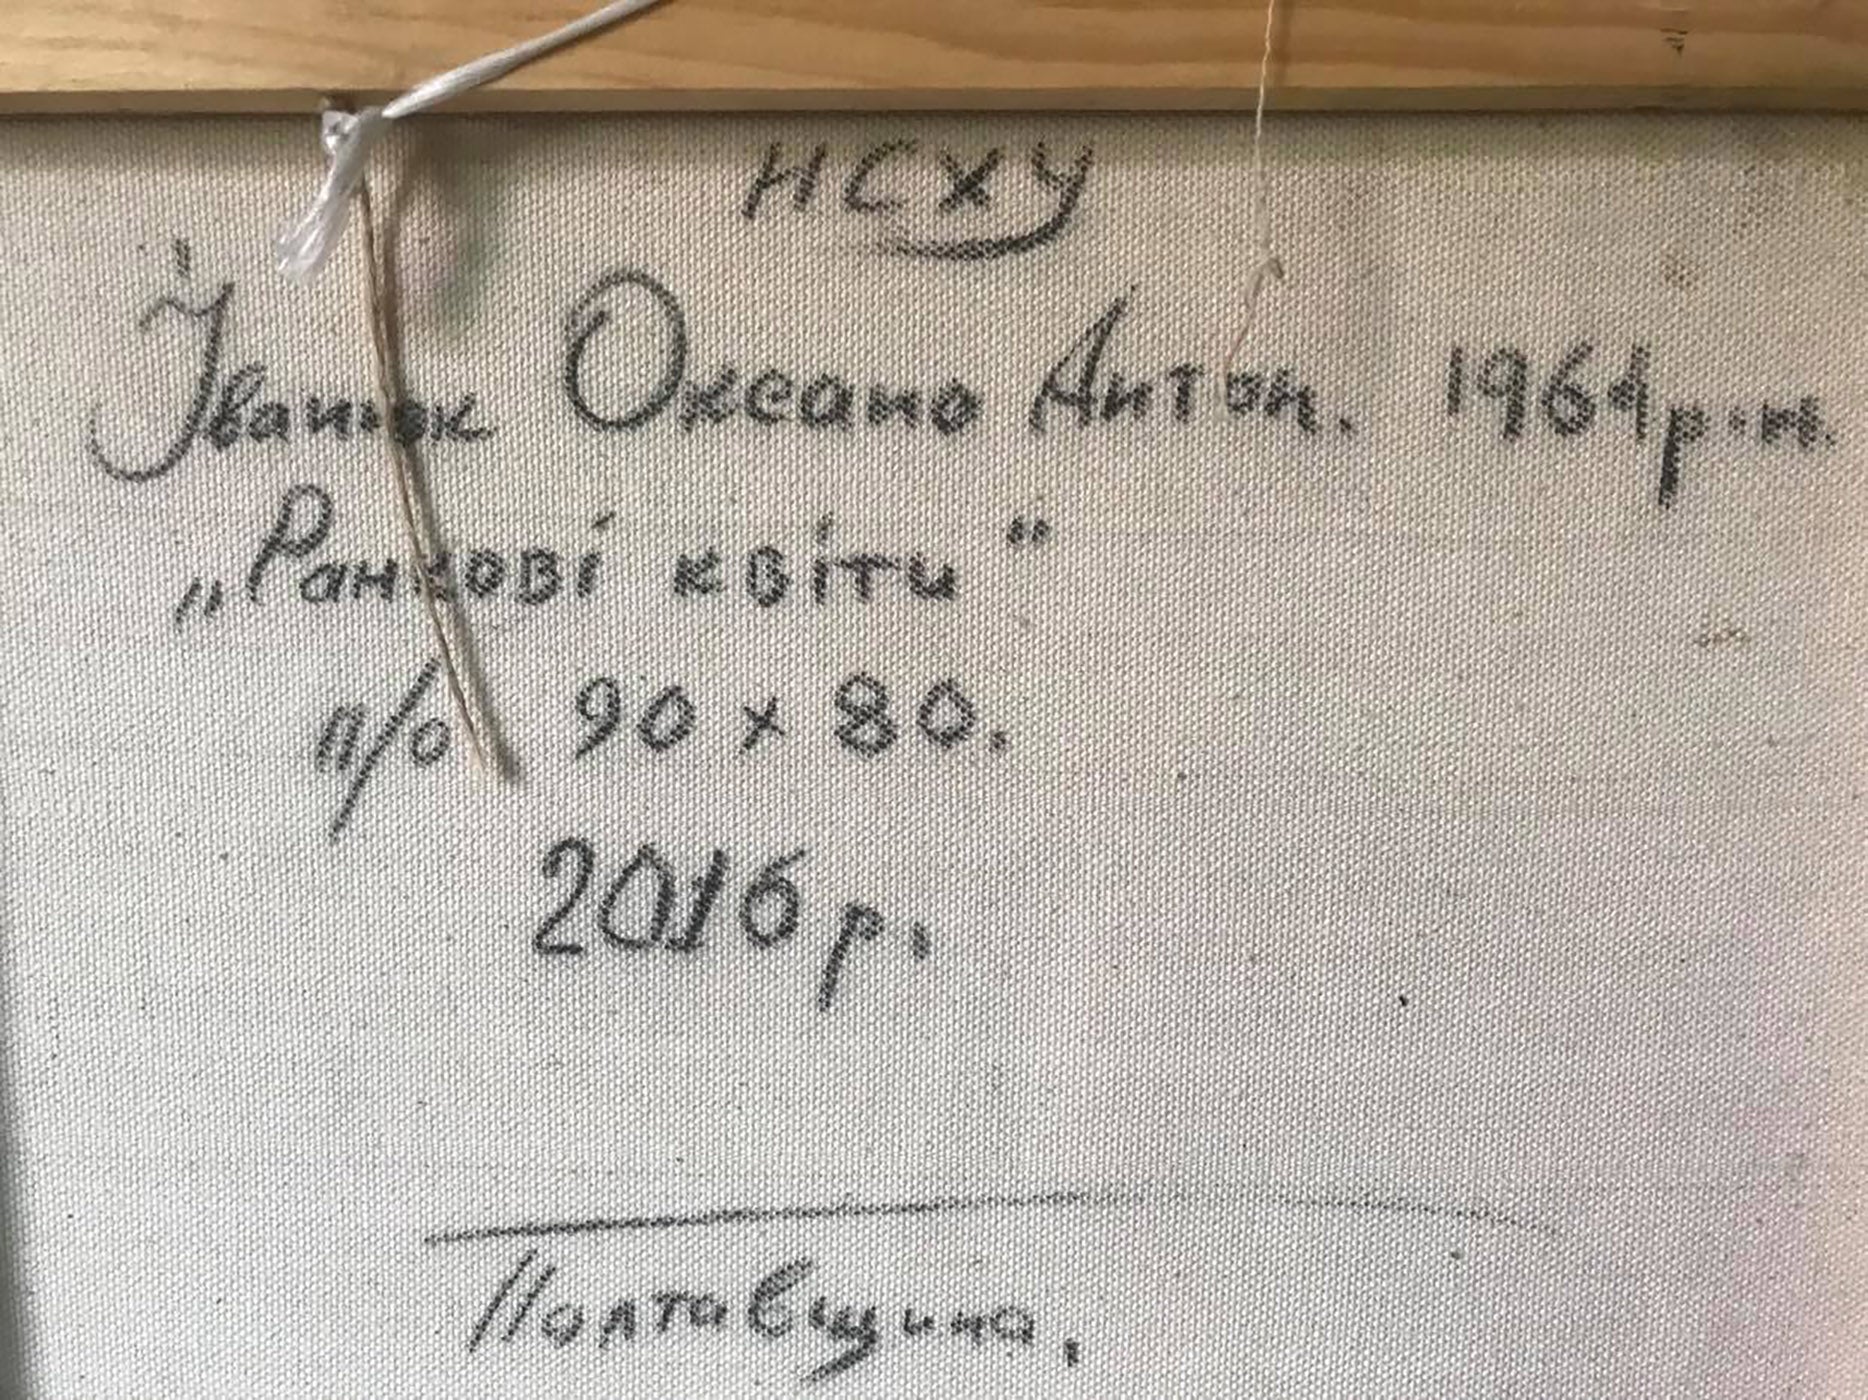 НСХУ
Іванюк Оксана Антон. 1964 р.н.
„Ранкові квіти“
п/о 90 x 80.
2016 р.
Полтавщина.